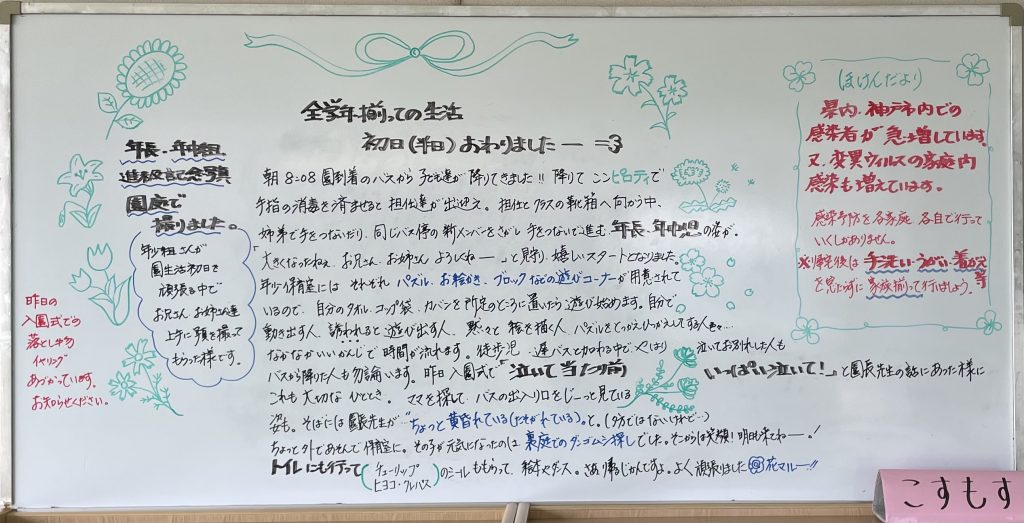 全学年揃っての生活
初日(半日)おわりましたー =3
年長・年中組
進級記念写真
園庭で
撮りました。
年少組さんが
園生活初日を
頑張る中で
お兄さんお姉さん達
上手に顔を撮って
もらった様です。
昨日の
入園式での
落とし物
イヤリング
あづかっています。
お知らせください。
朝8:08園到着のバスから子ども達が降りてきました!!降りてピロティで
手指の消毒を済ませると担任達が出迎え。担任とクラスの靴箱へ向かう中、
姉弟で手をつないだり、同じバス停の新メンバーをさがし手をつないで進む年長・年中組の姿が。
「大きくなったねぇ お兄さん、お姉さん ようしくねー」と見守り、嬉しいスタートとなりました。
年少保育室には それぞれ パズル、お絵かき、ブロックなどの遊びコーナーが用意されて
いるので、自分のタオル、コップ袋、カバンを所定のところに置いたら遊び始めます。自分で
動き出す人、誘われると遊び出す人、黙々と絵を描く人、パズルをとっかえひっかえしてする人
なかなかいいかんじで時間が流れます。徒歩児、遅バスとかわる中で やはり 泣いておられた人も
バスから降りた人も勿論います。昨日入園式で「泣いて当たり前 いっぱい泣いて!」と園長先生の話にあった様に
これも大切なひととき。ママを探して、バスの出入り口をじーっと見ている
姿も。そばには園長先生が"ちょっと黄昏れている(たそがれている)。と。(夕方ではないけれど…)
ちょっと外であそんで保育室に。その子が元気になったのは裏庭でのダンゴムシ探しでした。そこからは笑顔!明日も来てねー!
トイレにも行って(チューリップ ヒヨコ・クレパス)のシールももらって、絵本やダンス。さあ帰るじかんですよ。よく頑張りました 花マルー!!
ほけんだより
県内、神戸市内での
感染者が急増しています。
又、変異ウィルスの家庭内
感染も増えています。
感染予防を各家庭、各自で行って
いくしかありません。
※帰宅後は手洗い・うがい・着がえ等
を見た時に家族揃って行いましょう。
こすもす